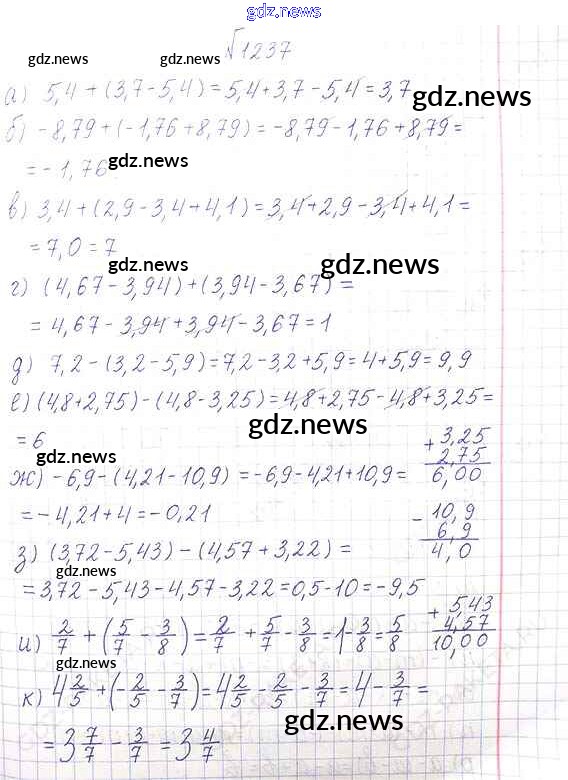 gdz.news
№1237
gdz.news gdz.news
а) 5,4 + (3,7 - 5,4) = 5,4 + 3,7 - 5,4 = 3,7
gdz.news
б) -8,79 + (-1,76 + 8,79) = -8,79 - 1,76 + 8,79 =
= -1,76
gdz.news
в) 3,4 + (2,9 - 3,4 + 4,1) = 3,4 + 2,9 - 3,4 + 4,1 =
= 7,0 = 7
gdz.news gdz.news
г) (4,67 - 3,94) + (3,94 - 3,67) =
= 4,67 - 3,94 + 3,94 - 3,67 = 1
д) 7,2 - (3,2 - 5,9) = 7,2 - 3,2 + 5,9 = 4 + 5,9 = 9,9
е) (4,8 + 2,75) - (4,8 - 3,25) = 4,8 + 2,75 - 4,8 + 3,25 =
= 6
gdz.news
+ 3,25
2,75
6,00
ж) -6,9 - (4,21 - 10,9) = -6,9 - 4,21 + 10,9 =
= -4,21 + 4 = -0,21
gdz.news
- 10,9
6,9
4,0
з) (3,72 - 5,43) - (4,57 + 3,22) =
gdz.news
= 3,72 - 5,43 - 4,57 - 3,22 = 0,5 - 10 = -9,5
+ 5,43
4,57
10,00
и) 2/7 + (5/7 - 3/8) = 2/7 + 5/7 - 3/8 = 1 - 3/8 = 5/8
gdz.news
к) 4 2/5 + (-2/5 - 3/7) = 4 2/5 - 2/5 - 3/7 = 4 - 3/7 =
gdz.news
= 3 7/7 - 3/7 = 3 4/7